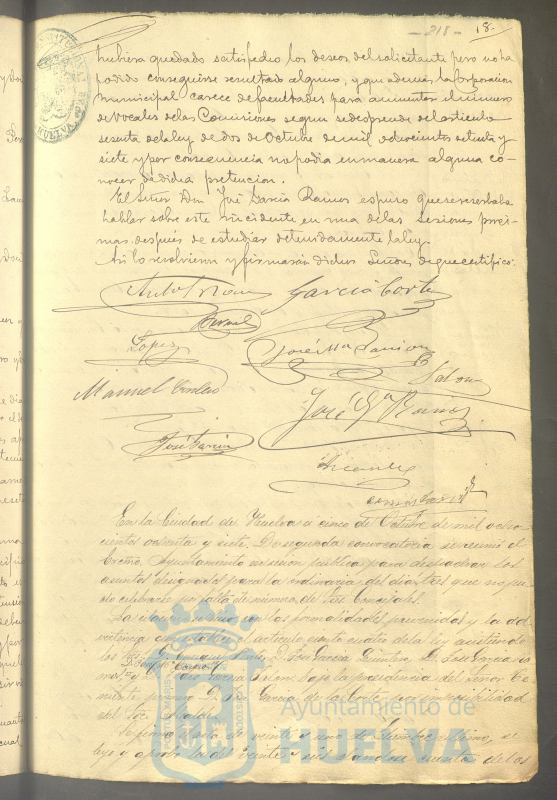 -218- 18-
hubiera quedado satisfecho los deseos del solicitante pero no ha
podido conseguirse resultado alguno, y que ademas la Corporacion
municipal carece de facultades para aumentar el numero
de vocales de las Comisiones segun se desprende del articulo
sesenta de la ley de dos de Octubre de mil ochocientos setenta y
siete y por consecuencia no podia en manera alguna co-
nocer de dicha pretencion.
El Señor Don José Garcia Ramos espuso que se reserbaba
hablar sobre este incidente en una de las sesiones procsi-
mas despues de estudiar detenidamente la ley.
Asi lo resolvieron y firmarán dichos Señores de que certifico.
Garcia Corte
Bernal
Lopez
Manuel Cordero
José Gª Ramos
José Garcia
Vicente
En la Ciudad de Huelva a cinco de Octubre de mil ocho-
cientos ochenta y siete. De segunda convocatoria se reunió el
Excmo. Ayuntamiento en sesion publica para despachar los
asuntos designados para la ordinaria del dia tres que no pu-
do celebrarse por falta de número de Sres Concejales.
con las formalidades prevenidas y la ad-
vertencia el articulo ciento cuatro de la ley asistiendo
los Sres D. José Garcia Quintero, D. José Garcia Ra-
mos, bajo la presidencia del Señor Te-
niente primero D. Garcia de la Corte por imposibilidad
del Sor. Alcalde.
veinte y uno de ultimo, se
leyo y aprobó la del veinte y seis dandose cuenta de los
Ayuntamiento de
HUELVA
HUELVA